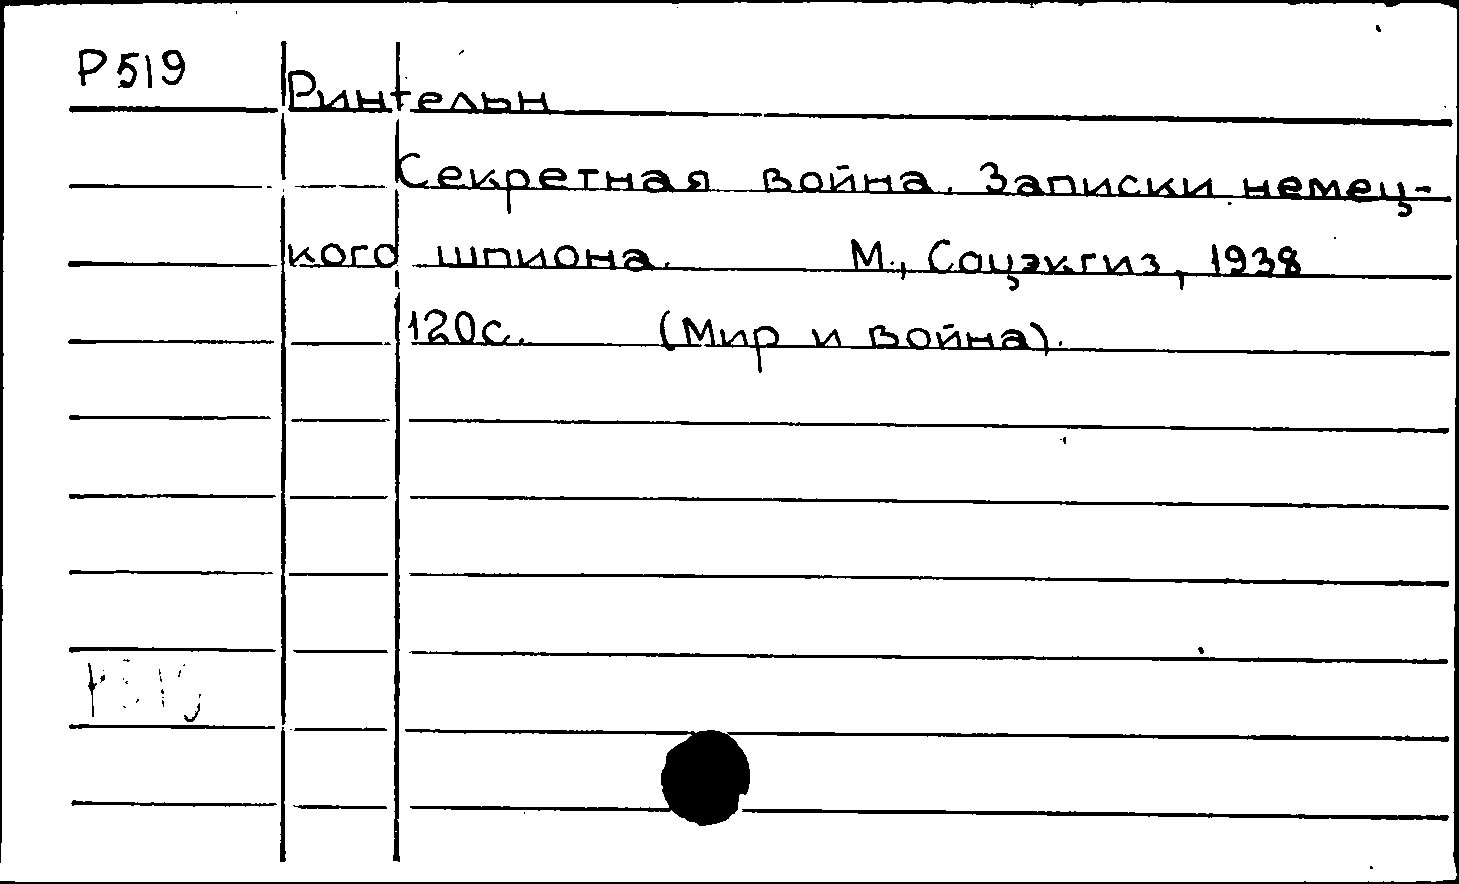 Р519
Ринтельн
Секретная война. Записки немец-
кого шпиона. М., Соцэкгиз, 1938
120с. (Мир и война).